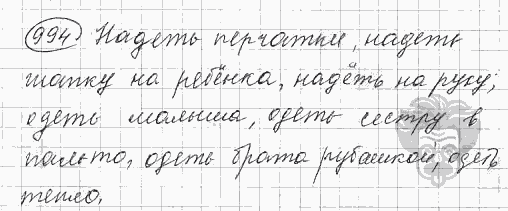 994) Надеть перчатки, надеть
шапку на ребёнка, надеть на руку;
одеть малыша, одеть сестру в
пальто, одеть брата рубашкой, одеть
тепло.